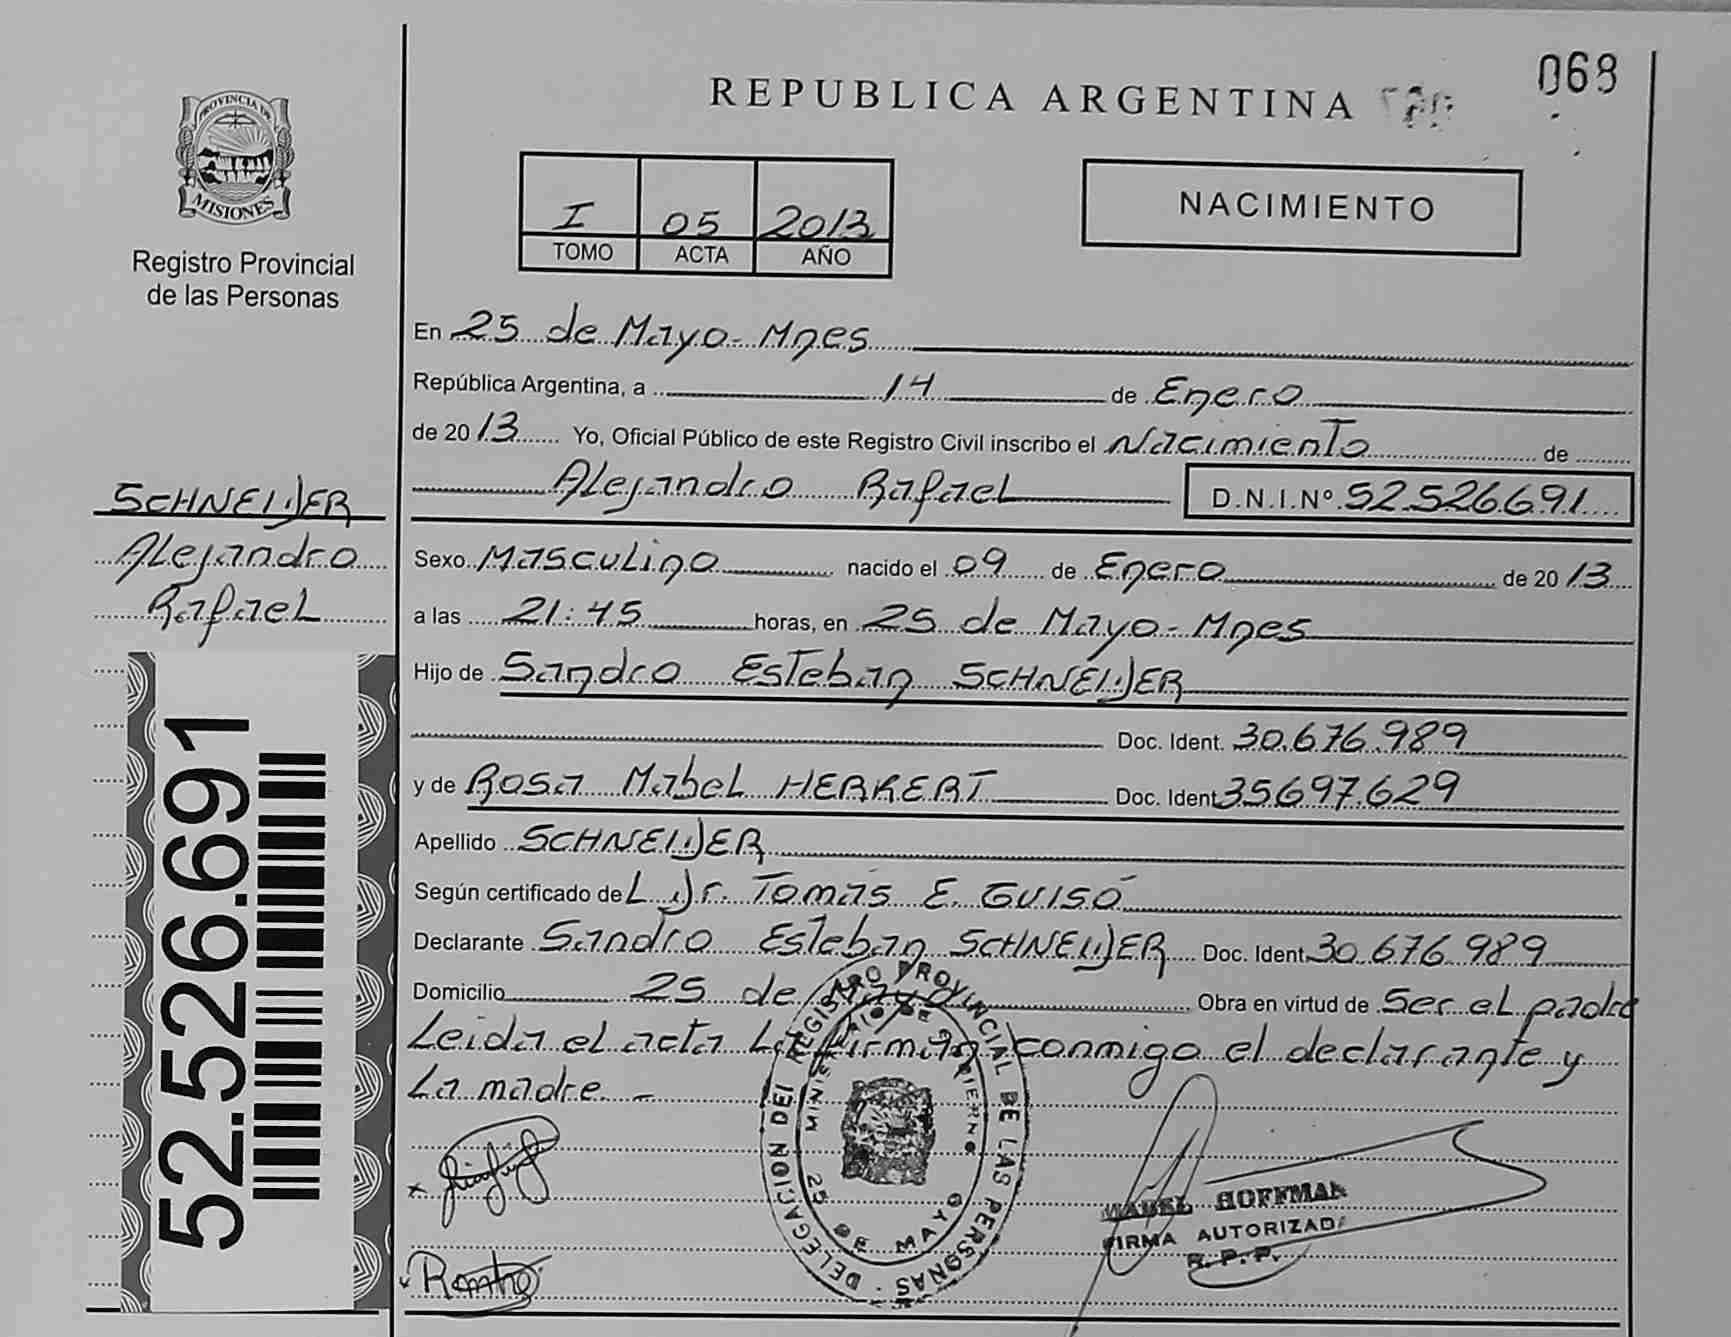 068
REPUBLICA ARGENTINA
PROVINCIA DE
MISIONES
Registro Provincial
de las Personas
I 05 2013
TOMO ACTA AÑO
NACIMIENTO
En 25 de Mayo - Mnes
República Argentina, a 14 de Enero
de 2013 Yo, Oficial Público de este Registro Civil inscribo el Nacimiento de
Alejandro Rafael D.N.I.Nº 52.526.691
SCHNEIDER
Alejandro
Rafael
Sexo Masculino nacido el 09 de Enero de 2013
a las 21:45 horas, en 25 de Mayo - Mnes
Hijo de Sandro Esteban SCHNEIDER
Doc. Ident. 30.676.989
y de Rosa Mabel HERRERT Doc. Ident 35697629
Apellido SCHNEIDER
Según certificado de L Dr. Tomás E. Guisó
Declarante Sandro Esteban SCHNEIDER Doc. Ident 30.676.989
Domicilio 25 de Mayo Obra en virtud de Ser el padre
Leida el acta La firman conmigo el declarante y
La madre. -
52.526.691
DELEGACION DEL REGISTRO PROVINCIAL DE LAS PERSONAS
MINISTERIO DE GOBIERNO
25 DE MAYO
MABEL HOFFMAN
FIRMA AUTORIZADA
R. P. P.